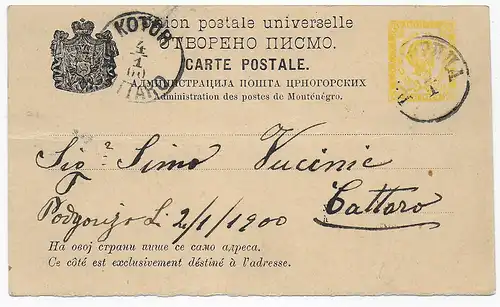 Union postale universelle
ОТВОРЕНО ПИСМО.
CARTE POSTALE.
АДМИНИСТРАЦИЈА ПОШТА ЦРНОГОРСКИХ
Administration des postes de Monténégro.
КОТОР
4
1
00
CATTARO
1
Sigre Simo Vucinic
Cattaro
Podgorizo Li 2/1/1900
На овој страни пише се само адреса.
Ce côté est exclusivement déstiné à l'adresse.